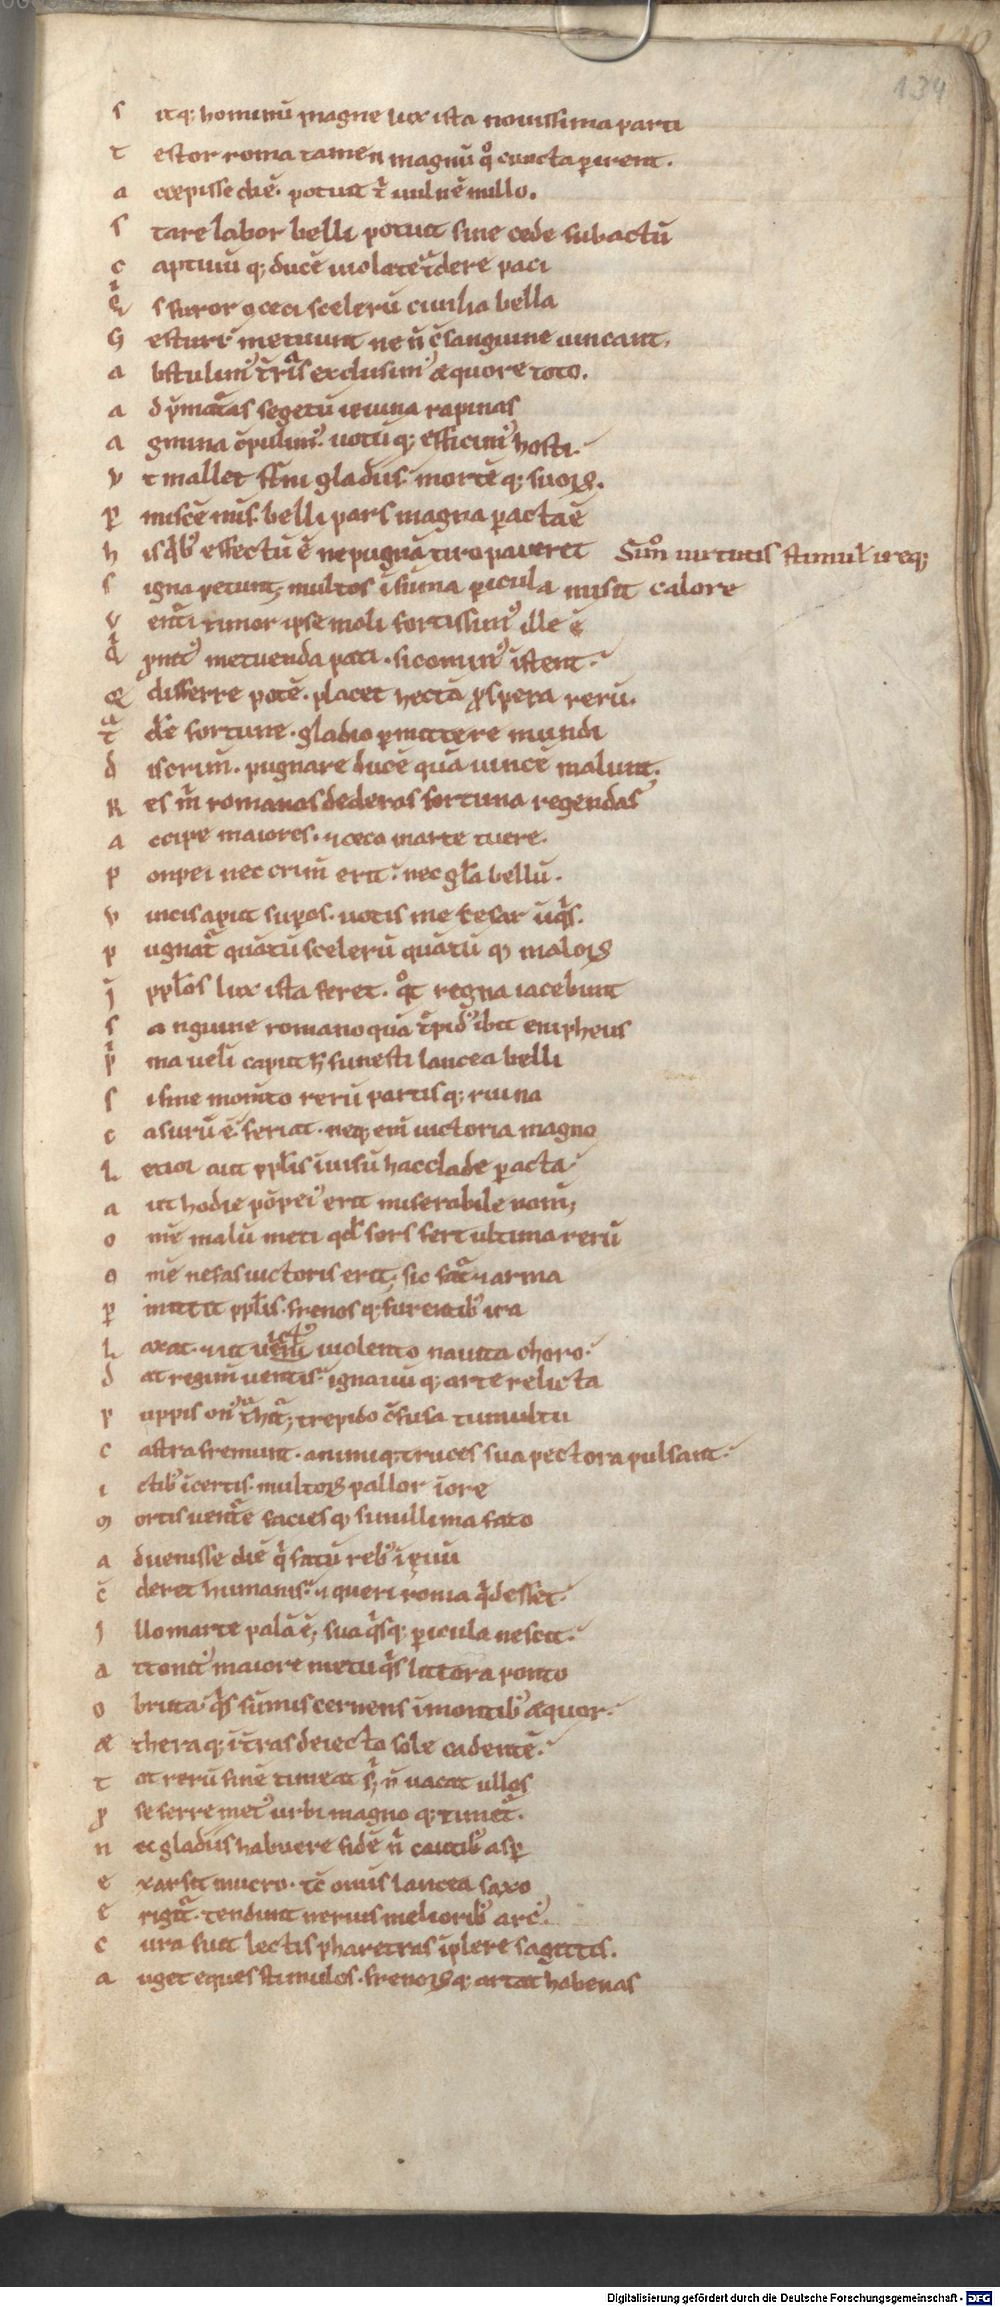 134
s itq; hominū magne lux ista nouissima parti
t estor roma tamen magnū qͦ cuncta perirent.
a ccepisse diē. potuit tͥ uulnē nullo.
s tare labor belli potuit sine cede subactū
c aptiuū q; ducē uiolate tͣdere paci
q̄ s furor o ceci scelerū ciuilia bella
G esturi metuunt ne n̄ c̄ sanguine uincant.
a bstulimꝰ t̄ris exclusimꝰ æquore toto.
a d p̄maturas segetū ieiuna rapinas
a gmina cōpulimꝰ. uotū q; efficimꝰ hosti.
V t mallet st̄ni gladiis. mortē q; suoꝝ.
p miscē meis. belli pars magna ꝑacta ē
h is qͥbꝰ effectū ē ne pugnā tiro paueret Si mͦ uirtutis stimul̄ ireq;
s igna petunt; multos ī sūma ꝑicula misit calore
v enti timor ipse mali fortissimꝰ ille ē
q̄ ꝓmtꝰ metuenda pati. si cominꝰ īstent.
& differre potē. placet hec tā ꝓspera rerū.
t dē fortune. gladio ꝑmittere mundi
d iscrim̄. pugnare ducē quā uincē malunt.
R es m̄ romanas dederas fortuna regendas
a ccipe maiores. ⁊ ceca in marte tuere.
p onpei nec crim̄ erit. nec gl̄a bellū.
v incis apud suꝑos. uotis me cesar iniqͥs.
p ugnatͬ quātū scelerū quātū q; maloꝝ
j ppl̄os lux ista feret. qͦt regna iacebunt
s anguine romano quā tͬpidꝰ ibit enipheus
pͥ ma ueli caput h̄ funesti lancea belli
s i sine momto rerū partisq; ruina
c asurū ē feriat. neq; em̄ uictoria magno
L etior aut ppl̄is īuisū hac clade ꝑacta
a ut hodie pōpeiꝰ erit miserabile nom̄;
o mē malū meti qd̄ sors fert ultima rerū
o mē nefas uictoris erit; sic fatͬ ⁊ arma
p ͥmittit ppl̄is. frenos q; furentibꝰ ira
L axat. ⁊ ut uictꝰ uiolento nauita choro.
d at regim̄ uentis. ignauū q; arte relicta
p uppis onꝰ tͣhitͬ; trepido cōfusa tumultu
c astra fremunt. animiq; truces sua pectora pulsant.
i ctibꝰ īcertis. multoꝝ pallor ī ore
m ortis uentͬe facies q; simillima fato
a duenisse diē qͥ fatū rebꝰ ī euū
c̄ deret humanis. ⁊ queri roma qͥd esset.
j llo marte palā ē; sua qͥsq; ꝑicula nescit.
a ttonitꝰ maiore metu qͥs littora ponto
o bruta. qͥs sūmis cernens ī montibꝰ æquor.
æ thera q; ī t̄ras deiecto sole cadentē.
t ot rerū finē timeat sͥ; n̄ uacat ullos
ꝓ se ferre metꝰ urbi magno q; timetͬ.
n ec gladiis habuere fidē nͥ cautibꝰ aspͬ
e xarsit mucro. tc̄ omīs lancea saxo
e rigitͬ. tendunt neruis melioribꝰ arcꝰ.
c ura fuit lectis pharetras īplere sagittis.
a uget eques stimulos. frenoꝝ q; artat habenas
Digitalisierung gefördert durch die Deutsche Forschungsgemeinschaft - DFG